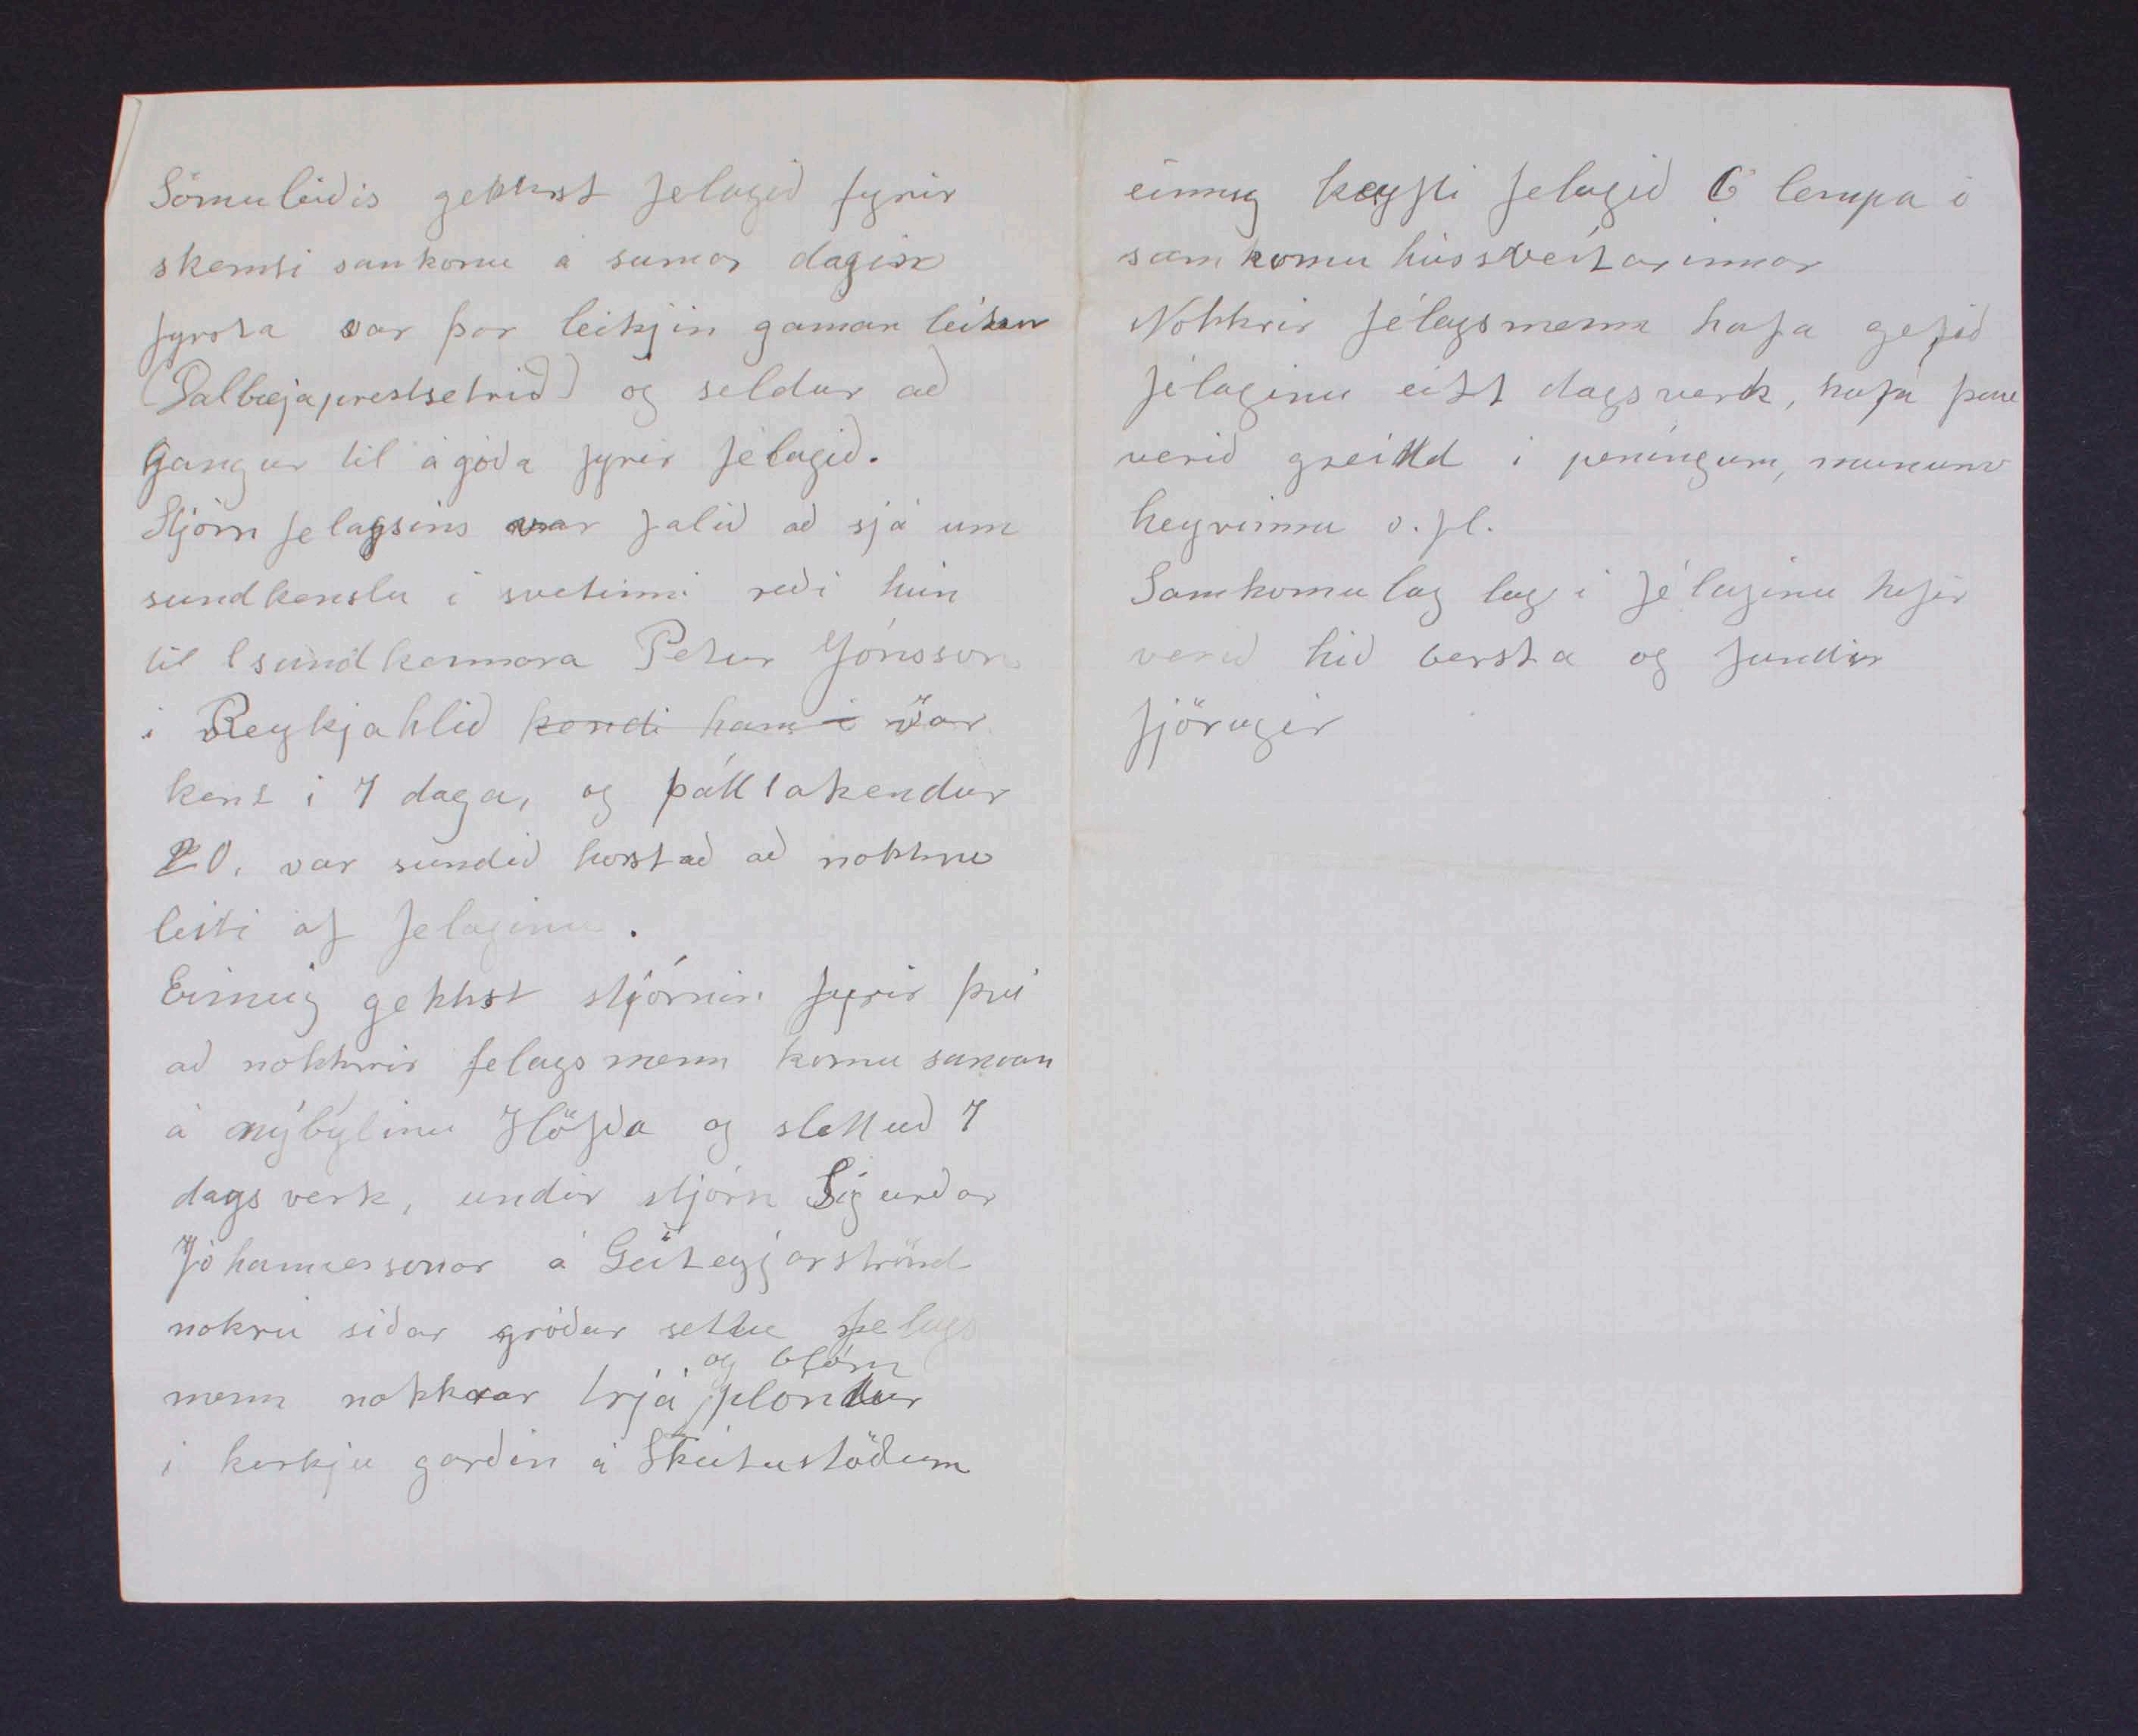 Sömuleiðis gekkst felagið fyrir
skemti samkomu á sumar dagin
fyrsta var þar leikjin gaman leikur
(Dalbæjaprestsetrið) og seldur að
Gangur til ágóða fyrir félagið.
Stjórn felagsins var falið að sjá um
sundkenslu í sveitinni reði hún
til sundkennara Petur Jónsson
í Reykjahlið kendi hann í var
kent í 7 daga, og þátttakendur
20. var sundið kostað að nokkru
leiti af felaginu.
Einnig gekkst stjórnin fyrir því
að nokkrir felags menn komu saman
á nýbýlinu Höfða og slettuð 7
dags verk, undir stjórn Sigurðar
Jóhannessonar á Geiteyjarströnd
nokru siðar gróður settu felags
menn nokkrar trjá og blóm plöndur
i kirkju garðin á Skútustöðum
einnig keyfti felagið 6 lampa í
samkomu hússveitarinnar
Nokkrir félagsmenn hafa gefið
félaginu eitt dagsverk, hafa þau
verið greidd i peningum, munum
heyvinnu o.fl.
Samkomulag lag i félaginu hefir
verið hið bersta og fundir
fjörugir